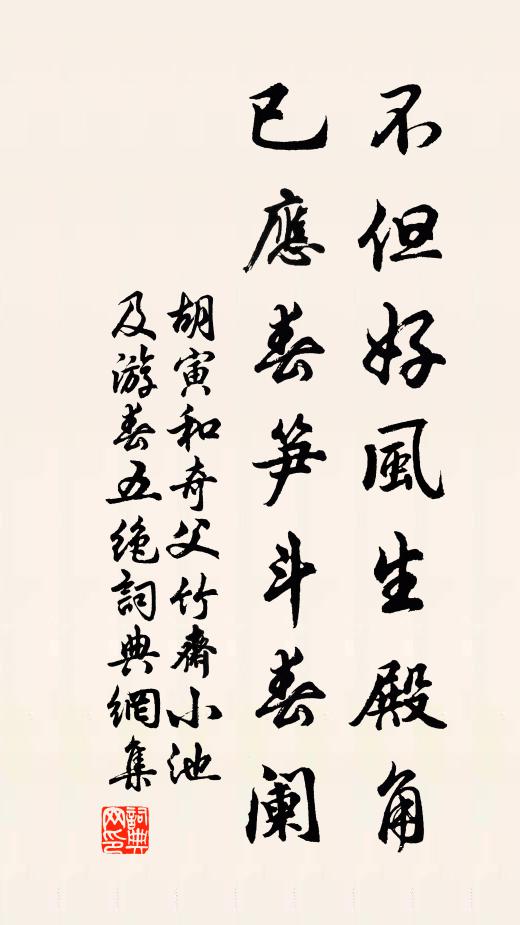 不但好風生殿角
已應春笋斗春阑
胡寅和奇父竹齋小池
及游春五绝詞典網集
詞典网印